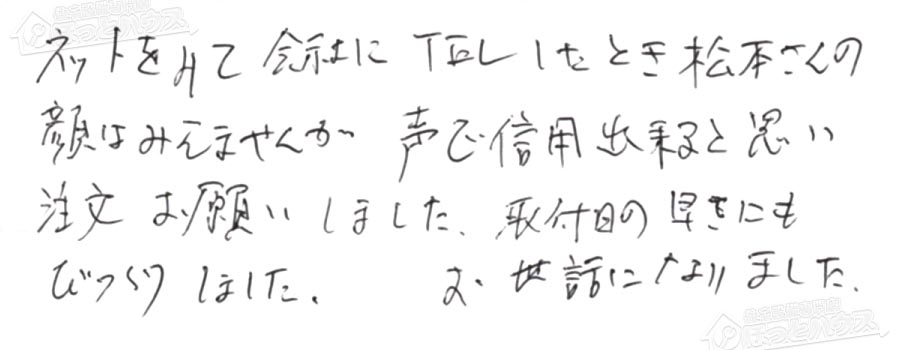 ネットをみて会社にTELしたとき松本さんの
顔はみえませんが 声で信用出来ると思い
注文お願いしました、取付日の早さにも
びっくりしました。 お世話になりました。
ほっとハウス
ほっとハウス